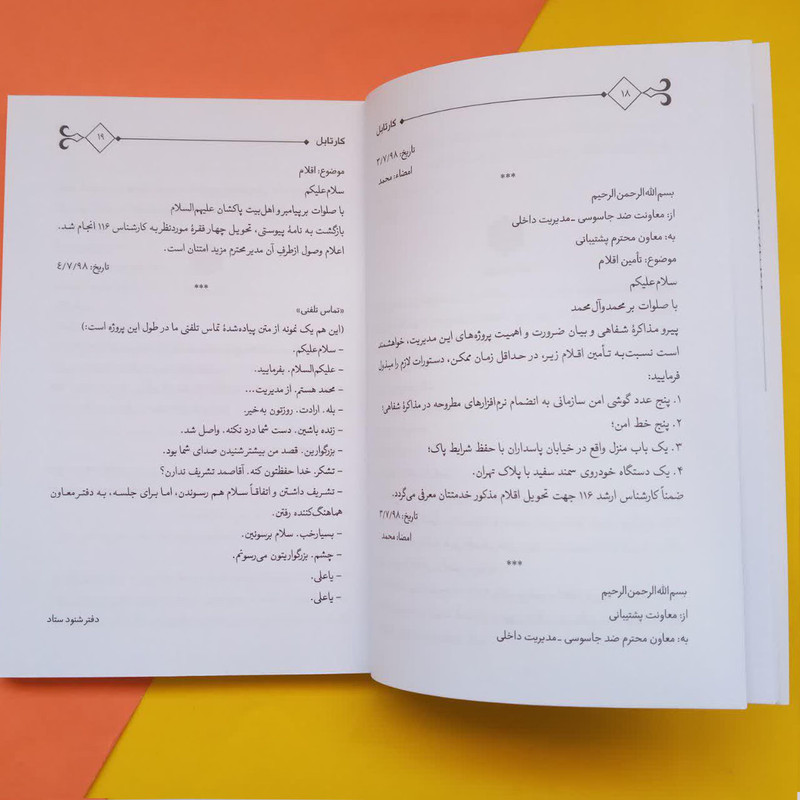 ۱۸
کارتابل
تاریخ: ۳/۷/۹۸
امضاء: محمد
***
بسم‌الله‌الرحمن‌الرحیم
از: معاونت ضد جاسوسی ـ مدیریت داخلی
به: معاون محترم پشتیبانی
موضوع: تأمین اقلام
سلام‌علیکم
با صلوات بر محمد و آل محمد
پیرو مذاکرهٔ شفاهی و بیان ضرورت و اهمیت پروژه‌های این مدیریت، خواهشمند
است نسبت‌به تأمین اقلام زیر، در حداقل زمان ممکن، دستورات لازم را مبذول
فرمایید:
۱. پنج عدد گوشی امن سازمانی به انضمام نرم‌افزارهای مطروحه در مذاکرهٔ شفاهی؛
۲. پنج خط امن؛
۳. یک باب منزل واقع در خیابان پاسداران با حفظ شرایط پاک؛
۴. یک دستگاه خودروی سمند سفید با پلاک تهران.
ضمناً کارشناس ارشد ۱۱۶ جهت تحویل اقلام مذکور خدمتتان معرفی می‌گردد.
تاریخ: ۳/۷/۹۸
امضاء: محمد
***
بسم‌الله‌الرحمن‌الرحیم
از: معاونت پشتیبانی
به: معاون محترم ضد جاسوسی ـ مدیریت داخلی
کارتابل
۱۹
موضوع: اقلام
سلام‌علیکم
با صلوات بر پیامبر و اهل‌بیت پاکشان علیهم‌السلام
بازگشت به نامهٔ پیوستی، تحویل چهار فقرهٔ موردنظر به کارشناس ۱۱۶ انجام شد.
اعلام وصول ازطرف آن مدیر محترم مزید امتنان است.
تاریخ: ۴/۷/۹۸
***
«تماس تلفنی»
(این هم یک نمونه از متن پیاده‌شدهٔ تماس تلفنی ما در طول این پروژه است:)
- سلام‌علیکم.
- علیکم‌السلام. بفرمایید.
- محمد هستم. از مدیریت...
- بله. ارادت. روزتون به‌خیر.
- زنده باشین. دست شما درد نکنه. واصل شد.
- بزرگوارین. قصد من بیشتر شنیدن صدای شما بود.
- تشکر. خدا حفظتون کنه. آقاصمد تشریف ندارن؟
- تشریف داشتن و اتفاقاً سلام هم رسوندن، اما برای جلسه، به دفتر معاون
هماهنگ‌کننده رفتن.
- بسیارخب. سلام برسونین.
- چشم. بزرگواریتون می‌رسونم.
- یاعلی.
- یاعلی.
دفتر شنود ستاد